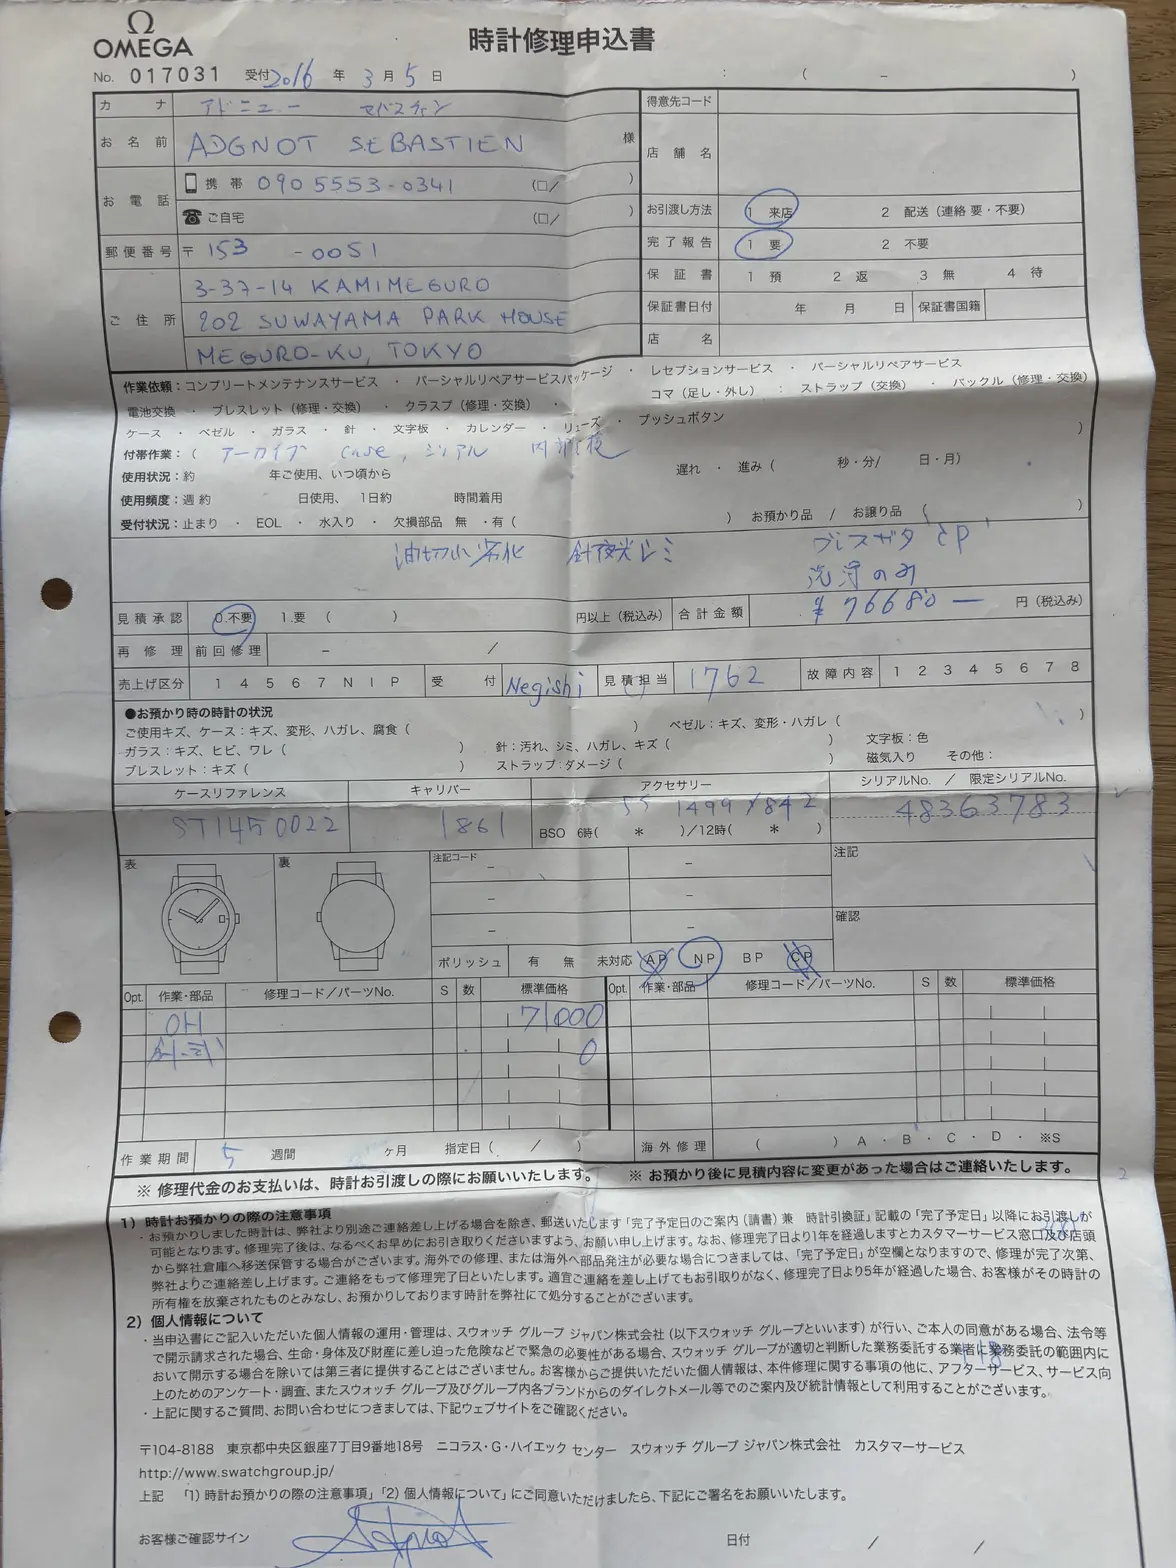 Ω
OMEGA
時計修理申込書
No. 017031 受付 2016 年 3 月 5 日 : ( − )
カナ アドニュー セバスティン
お名前 ADGNOT SEBASTIEN 様
お電話 携帯 090 5553-0341 (□/ )
☎ ご自宅 (□/ )
郵便番号 〒 153 -0051
ご住所 3-37-14 KAMIMEGURO
202 SUWAYAMA PARK HOUSE
MEGURO-KU, TOKYO
得意先コード
店舗名
お引渡し方法 1 来店 2 配送(連絡 要・不要)
完了報告 1 要 2 不要
保証書 1 預 2 返 3 無 4 待
保証書日付 年 月 日 保証書国籍
店名
作業依頼:コンプリートメンテナンスサービス ・ パーシャルリペアサービスパッケージ ・ レセプションサービス ・ パーシャルリペアサービス
電池交換 ・ ブレスレット(修理・交換) ・ クラスプ(修理・交換) ・ コマ(足し・外し): ストラップ(交換) ・ バックル(修理・交換)
ケース ・ ベゼル ・ ガラス ・ 針 ・ 文字板 ・ カレンダー ・ リューズ ・ プッシュボタン
付帯作業:( アーカイブ case, シリアル 内部 )
使用状況:約 年ご使用、いつ頃から 遅れ ・ 進み( 秒・分/ 日・月)
使用頻度:週 約 日使用、 1日約 時間着用
受付状況:止まり ・ EOL ・ 水入り ・ 欠損部品 無 ・有( ) お預かり品 / お譲り品 (
油切れ劣化 針夜光シミ ブレスガタ
洗浄のみ
見積承認 0.不要 1.要 ( ) 円以上(税込み) 合計金額 ¥76680― 円(税込み)
再修理 前回修理 − /
売上げ区分 1 4 5 6 7 N I P 受付 Negishi 見積担当 1762 故障内容 1 2 3 4 5 6 7 8
●お預かり時の時計の状況
ご使用キズ、ケース:キズ、変形、ハガレ、腐食( ) ベゼル:キズ、変形・ハガレ( )
ガラス:キズ、ヒビ、ワレ( ) 針:汚れ、シミ、ハガレ、キズ( ) 文字板:色
ブレスレット:キズ( ) ストラップ:ダメージ( ) 磁気入り その他:
ケースリファレンス キャリバー アクセサリー シリアルNo. / 限定シリアルNo.
ST1450022 1861 SS 1499/842 48363783
BSO 6時( * )/12時( * )
表 裏 注記コード − − 注記
− −
− − 確認
ポリッシュ 有 無 未対応 AP NP BP CP
Opt. 作業・部品 修理コード/パーツNo. S 数 標準価格 Opt. 作業・部品 修理コード/パーツNo. S 数 標準価格
OH 71000
0
作業期間 5 週間 ヶ月 指定日( / ) 海外修理 ( ) A ・ B ・ C ・ D ・ ※S
※ 修理代金のお支払いは、時計お引渡しの際にお願いいたします。 ※ お預かり後に見積内容に変更があった場合はご連絡いたします。
1) 時計お預かりの際の注意事項
・お預かりしました時計は、弊社より別途ご連絡差し上げる場合を除き、郵送いたします「完了予定日のご案内(請書)兼 時計引換証」記載の「完了予定日」以降にお引渡しが
可能となります。修理完了後は、なるべくお早めにお引き取りくださいますよう、お願い申し上げます。なお、修理完了日より1年を経過しますとカスタマーサービス窓口及び店頭
から弊社倉庫へ移送保管する場合がございます。海外での修理、または海外へ部品発注が必要な場合につきましては、「完了予定日」が空欄となりますので、修理が完了次第、
弊社よりご連絡差し上げます。ご連絡をもって修理完了日といたします。適宜ご連絡を差し上げてもお引取りがなく、修理完了日より5年が経過した場合、お客様がその時計の
所有権を放棄されたものとみなし、お預かりしております時計を弊社にて処分することがございます。
2) 個人情報について
・当申込書にご記入いただいた個人情報の運用・管理は、スウォッチ グループ ジャパン株式会社(以下スウォッチ グループといいます)が行い、ご本人の同意がある場合、法令等
で開示請求された場合、生命・身体及び財産に差し迫った危険などで緊急の必要性がある場合、スウォッチ グループが適切と判断した業務委託する業者に業務委託の範囲内に
おいて開示する場合を除いては第三者に提供することはございません。お客様からご提供いただいた個人情報は、本件修理に関する事項の他に、アフターサービス、サービス向
上のためのアンケート・調査、またスウォッチ グループ及びグループ内各ブランドからのダイレクトメール等でのご案内及び統計情報として利用することがございます。
・上記に関するご質問、お問い合わせにつきましては、下記ウェブサイトをご確認ください。
〒104-8188 東京都中央区銀座7丁目9番地18号 ニコラス・G・ハイエック センター スウォッチ グループ ジャパン株式会社 カスタマーサービス
http://www.swatchgroup.jp/
上記 「1)時計お預かりの際の注意事項」「2)個人情報について」にご同意いただけましたら、下記にご署名をお願いいたします。
お客様ご確認サイン 日付 / /